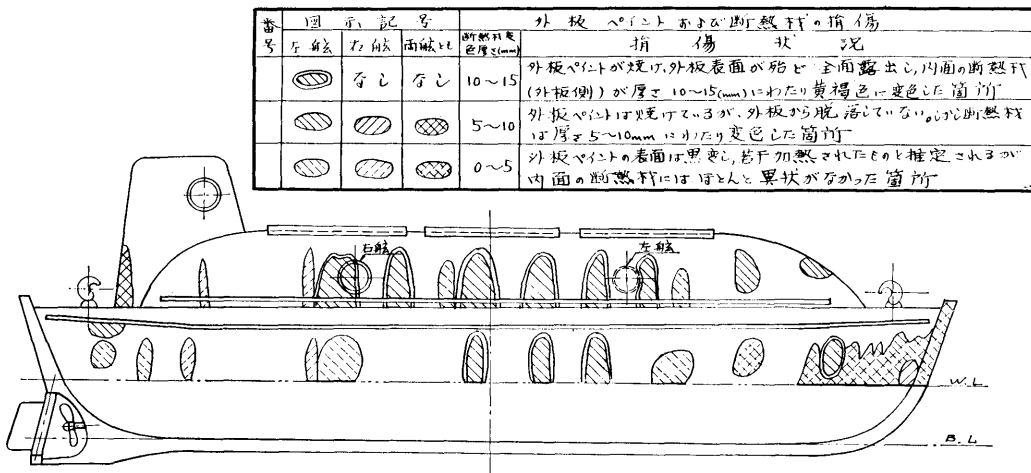 番号 図示記号 外板ペイントおよび断熱材の損傷
左舷 右舷 両舷とも 断熱材変色厚さ(mm) 損傷状況
なし なし 10～15 外板ペイントが焼け、外板表面が殆ど全面露出し、内面の断熱材
(外板側)が厚さ 10～15(mm)にわたり黄褐色に変色した箇所
5～10 外板ペイントは焼けているが、外板から脱落していない。しかし断熱材
は厚さ5～10mmにわたり変色した箇所
0～5 外板ペイントの表面は黒変し、若干加熱されたものと推定されるが
内面の断熱材にはほとんど異状がなかった箇所
右舷 左舷
W.L
B.L